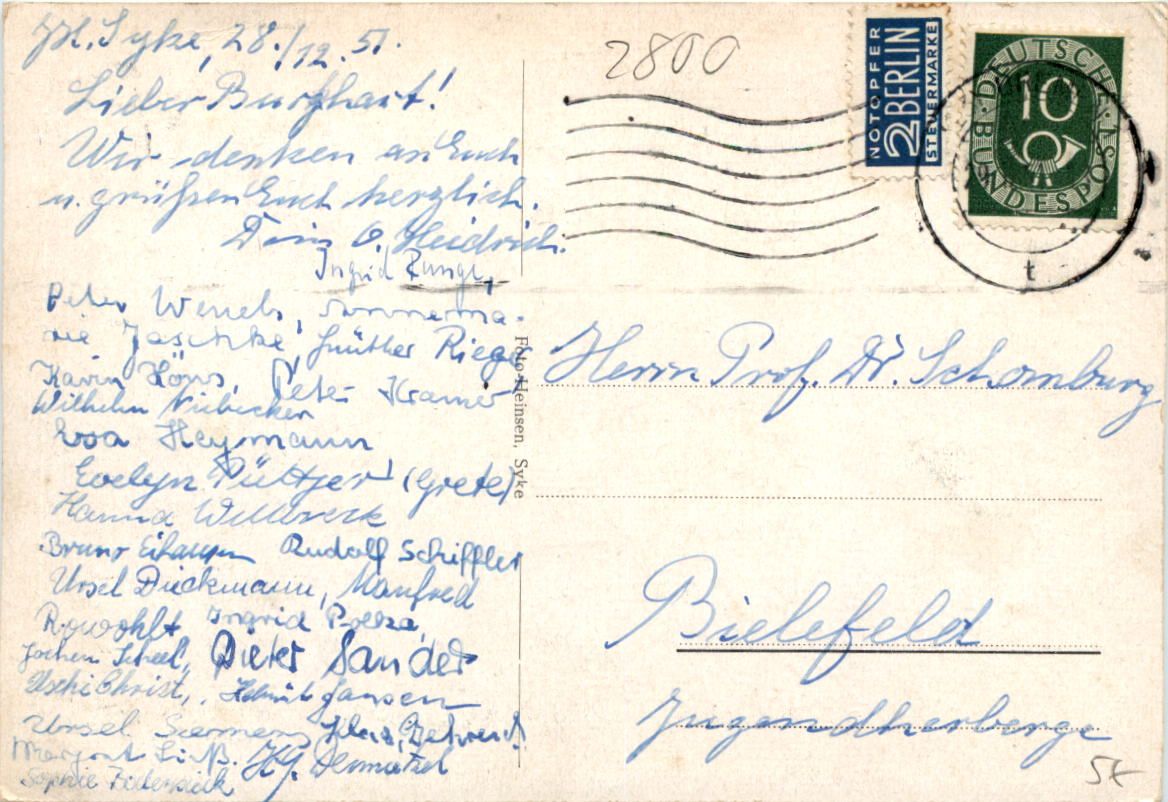 JH. Syke, 28./12.51.
Lieber Burghart!
Wir denken an Euch
u. grüßen Euch herzlich.
Dein O. Heidrich.
Ingrid Runge,
Peter Wenels, Annema-
rie Jaschke, Günther Riege
Karin Höns, Peter Kramer
Wilhelm Niebecker
Eva Heymann
Evelyn Püttjer (Grete)
Hanna Wellbrock
Bruno Rudolf Schiffler
Ursel Dieckmann, Manfred
Rowohlt Ingrid
Jochen Scheel, Dieter Sander
Uschi Christ, Helmut Jansen
Ursel Siemens, Behrendt
Margret H.J.
Sophie
2800
NOTOPFER
2 BERLIN
STEUERMARKE
DEUTSCHE
10
BUNDESPOST
t
Foto-Heinsen, Syke
Herrn Prof. Dr. Schomburg
Bielefeld
Jugendherberge